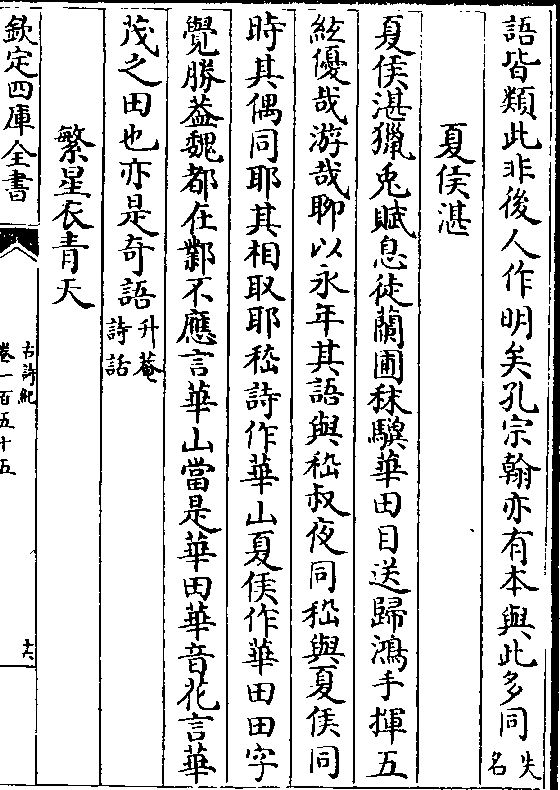 語皆類此非後人作明矣孔宗翰亦有本與此多同失名
夏侯湛
夏侯湛獵兎賦息徒蘭圃秣驥華田目送歸鴻手揮五
絃優哉游哉聊以永年其語與嵇叔夜同嵇與夏侯同
時其偶同耶其相取耶嵇詩作華山夏侯作華田田字
覺勝葢魏都在鄴不應言華山當是華田華音花言華
茂之田也亦是奇語升菴詩話
繁星衣青天
欽定四庫全書
古詩紀
卷一百五十五
六